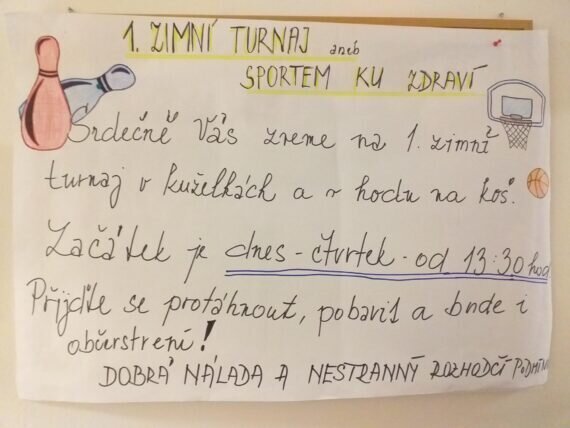 1. ZIMNÍ TURNAJ aneb
SPORTEM KU ZDRAVÍ
Srdečně Vás zveme na 1. zimní
turnaj v kuželkách a v hodu na koš.
Začátek je dnes - čtvrtek - od 13:30 hod
Přijďte se protáhnout, pobavit a bude i
občerstvení!
DOBRÁ NÁLADA A NESTRANNÝ ROZHODČÍ PODMÍN